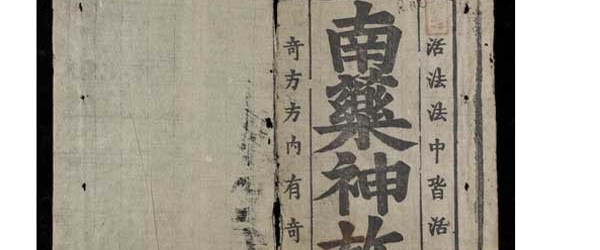 活法法中皆活
南藥神
奇方方内有奇